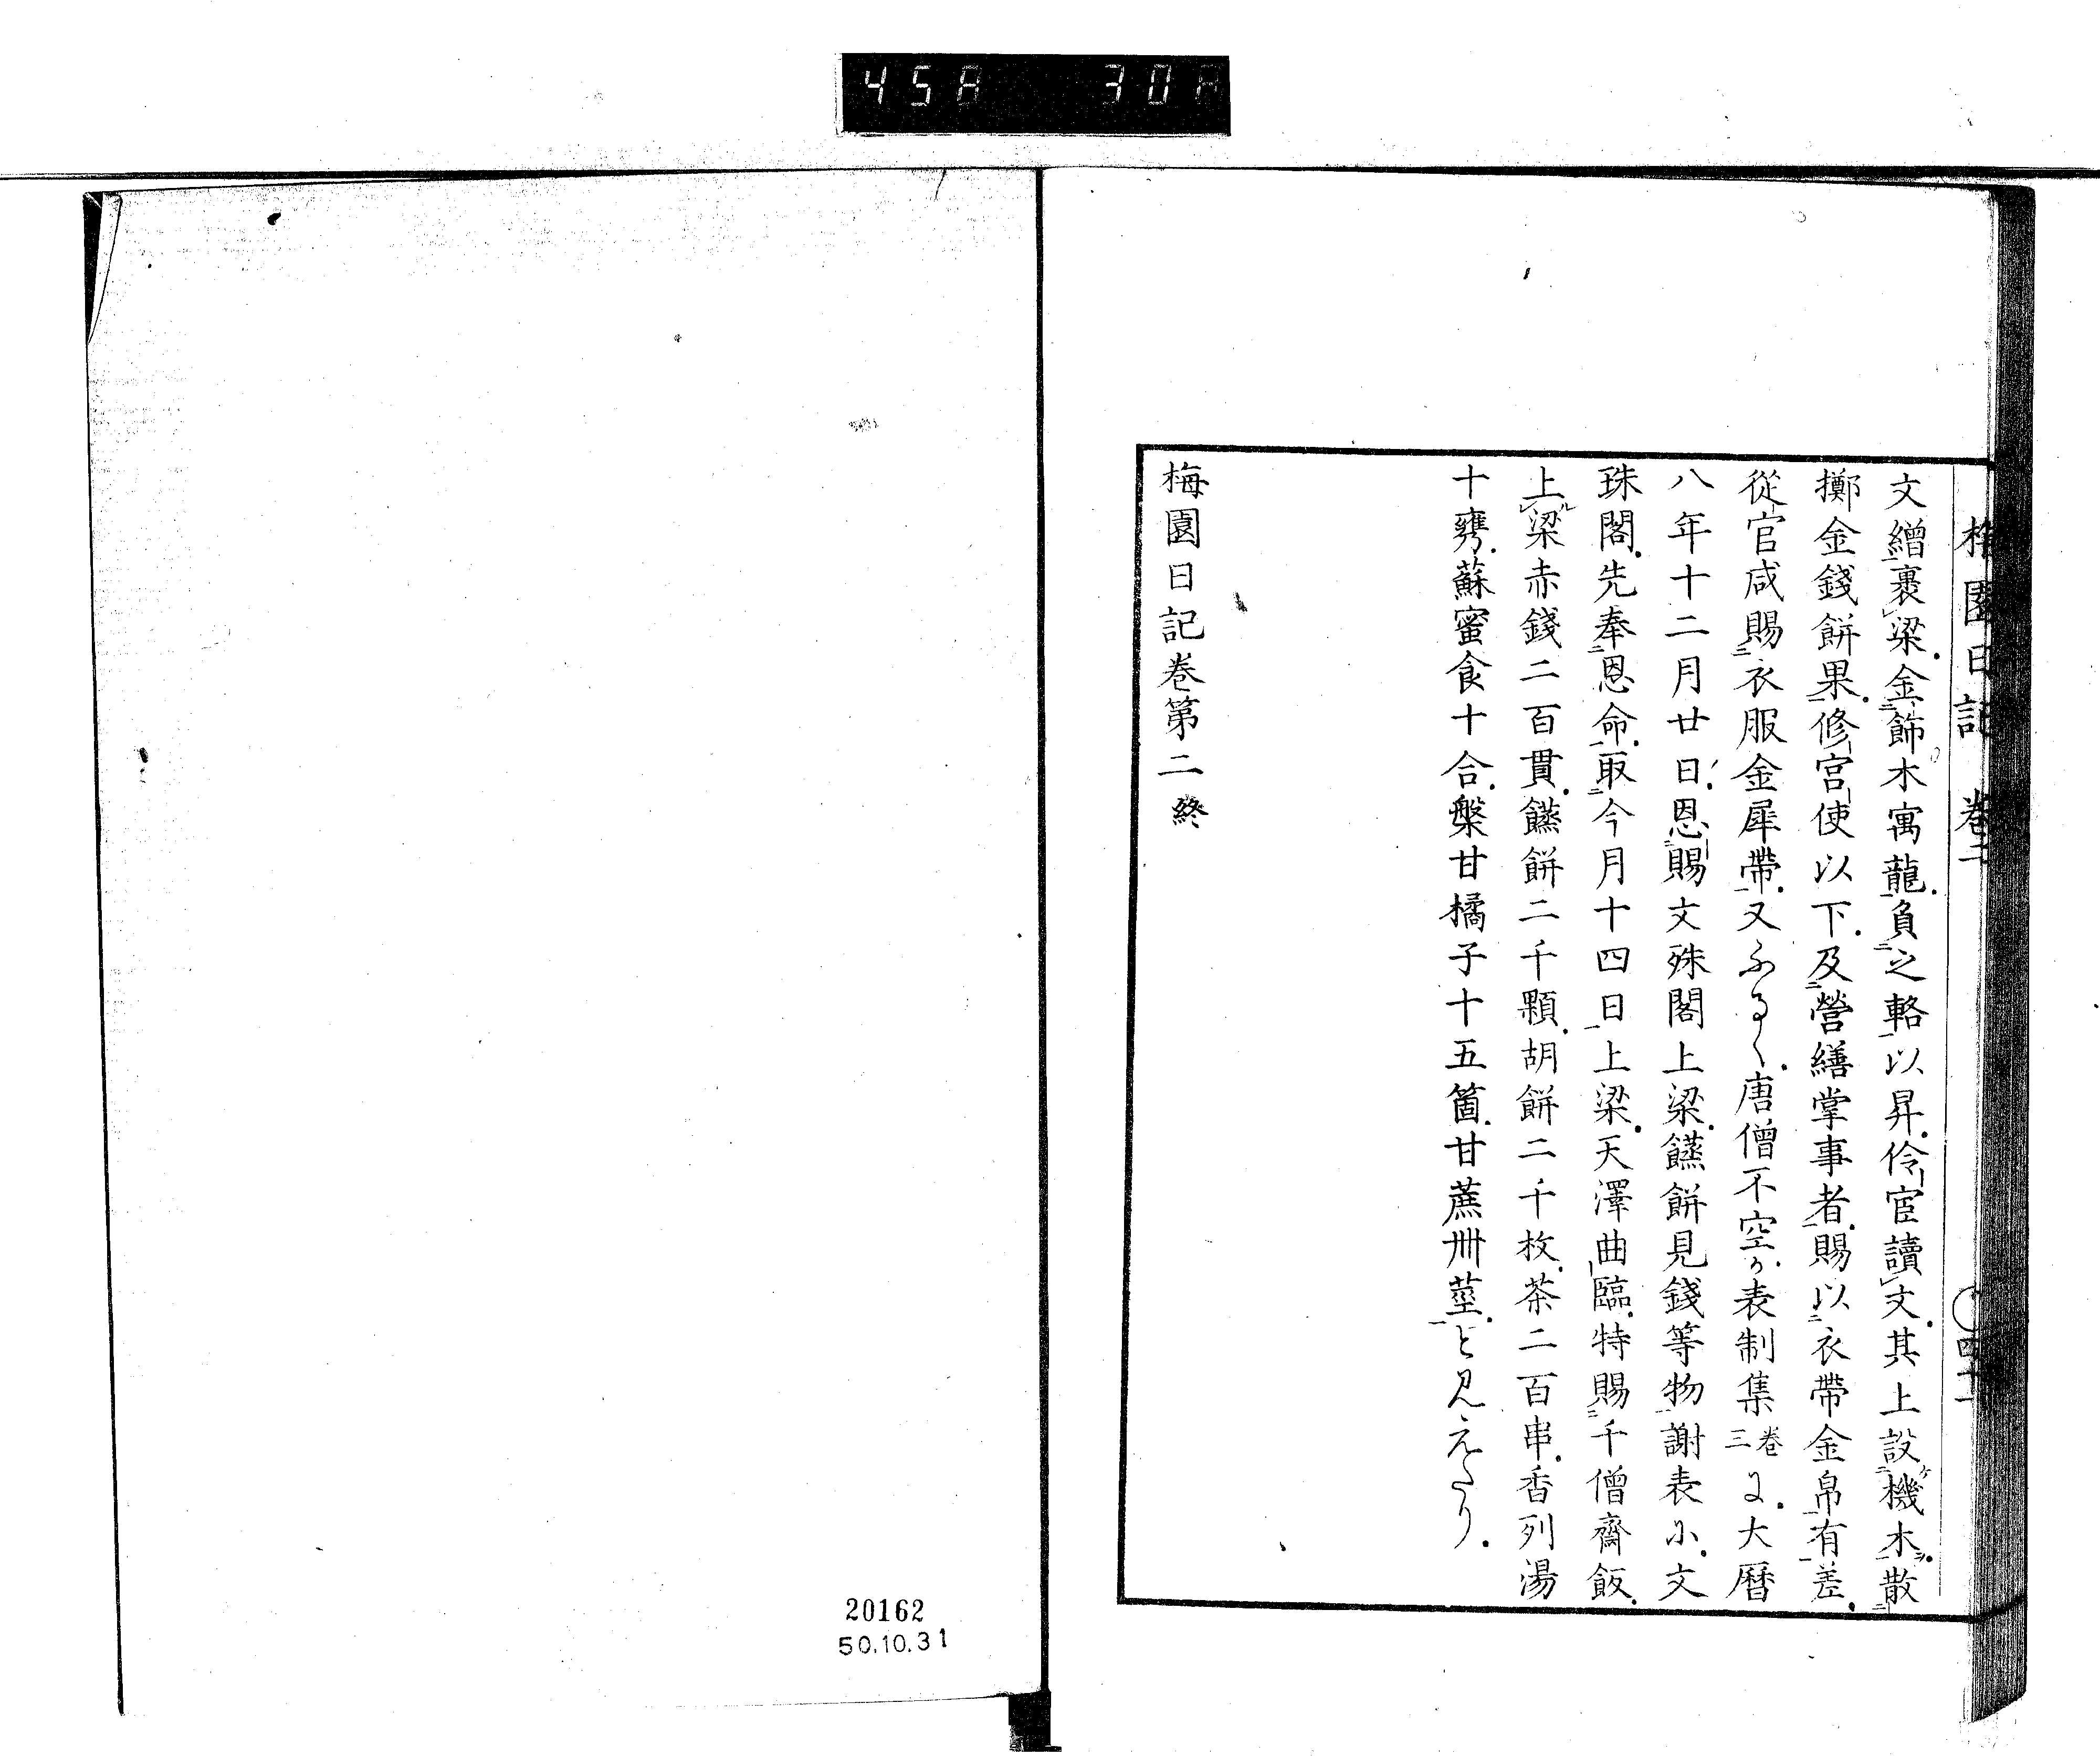 45A 30A
梅園日記 卷二 ○四十二
文繒裹梁金飾木寓龍負之輅以昇伶宦讀文其上設機木散
擲金錢餅果修宮使以下及營繕掌事者賜以衣帶金帛有差
從官咸賜衣服金犀帶又ふるく唐僧不空が表制集卷三に大曆
八年十二月廿日恩賜文殊閣上梁饊餅見錢等物謝表に文
珠閣先奉恩命取今月十四日上梁天澤曲臨特賜千僧齋飯
上梁赤錢二百貫饊餅二千顆胡餅二千枚茶二百串香列湯
十甕蘇蜜食十合槃甘橘子十五箇甘蔗卅莖と見えたり
梅園日記卷第二終
20162
50.10.31